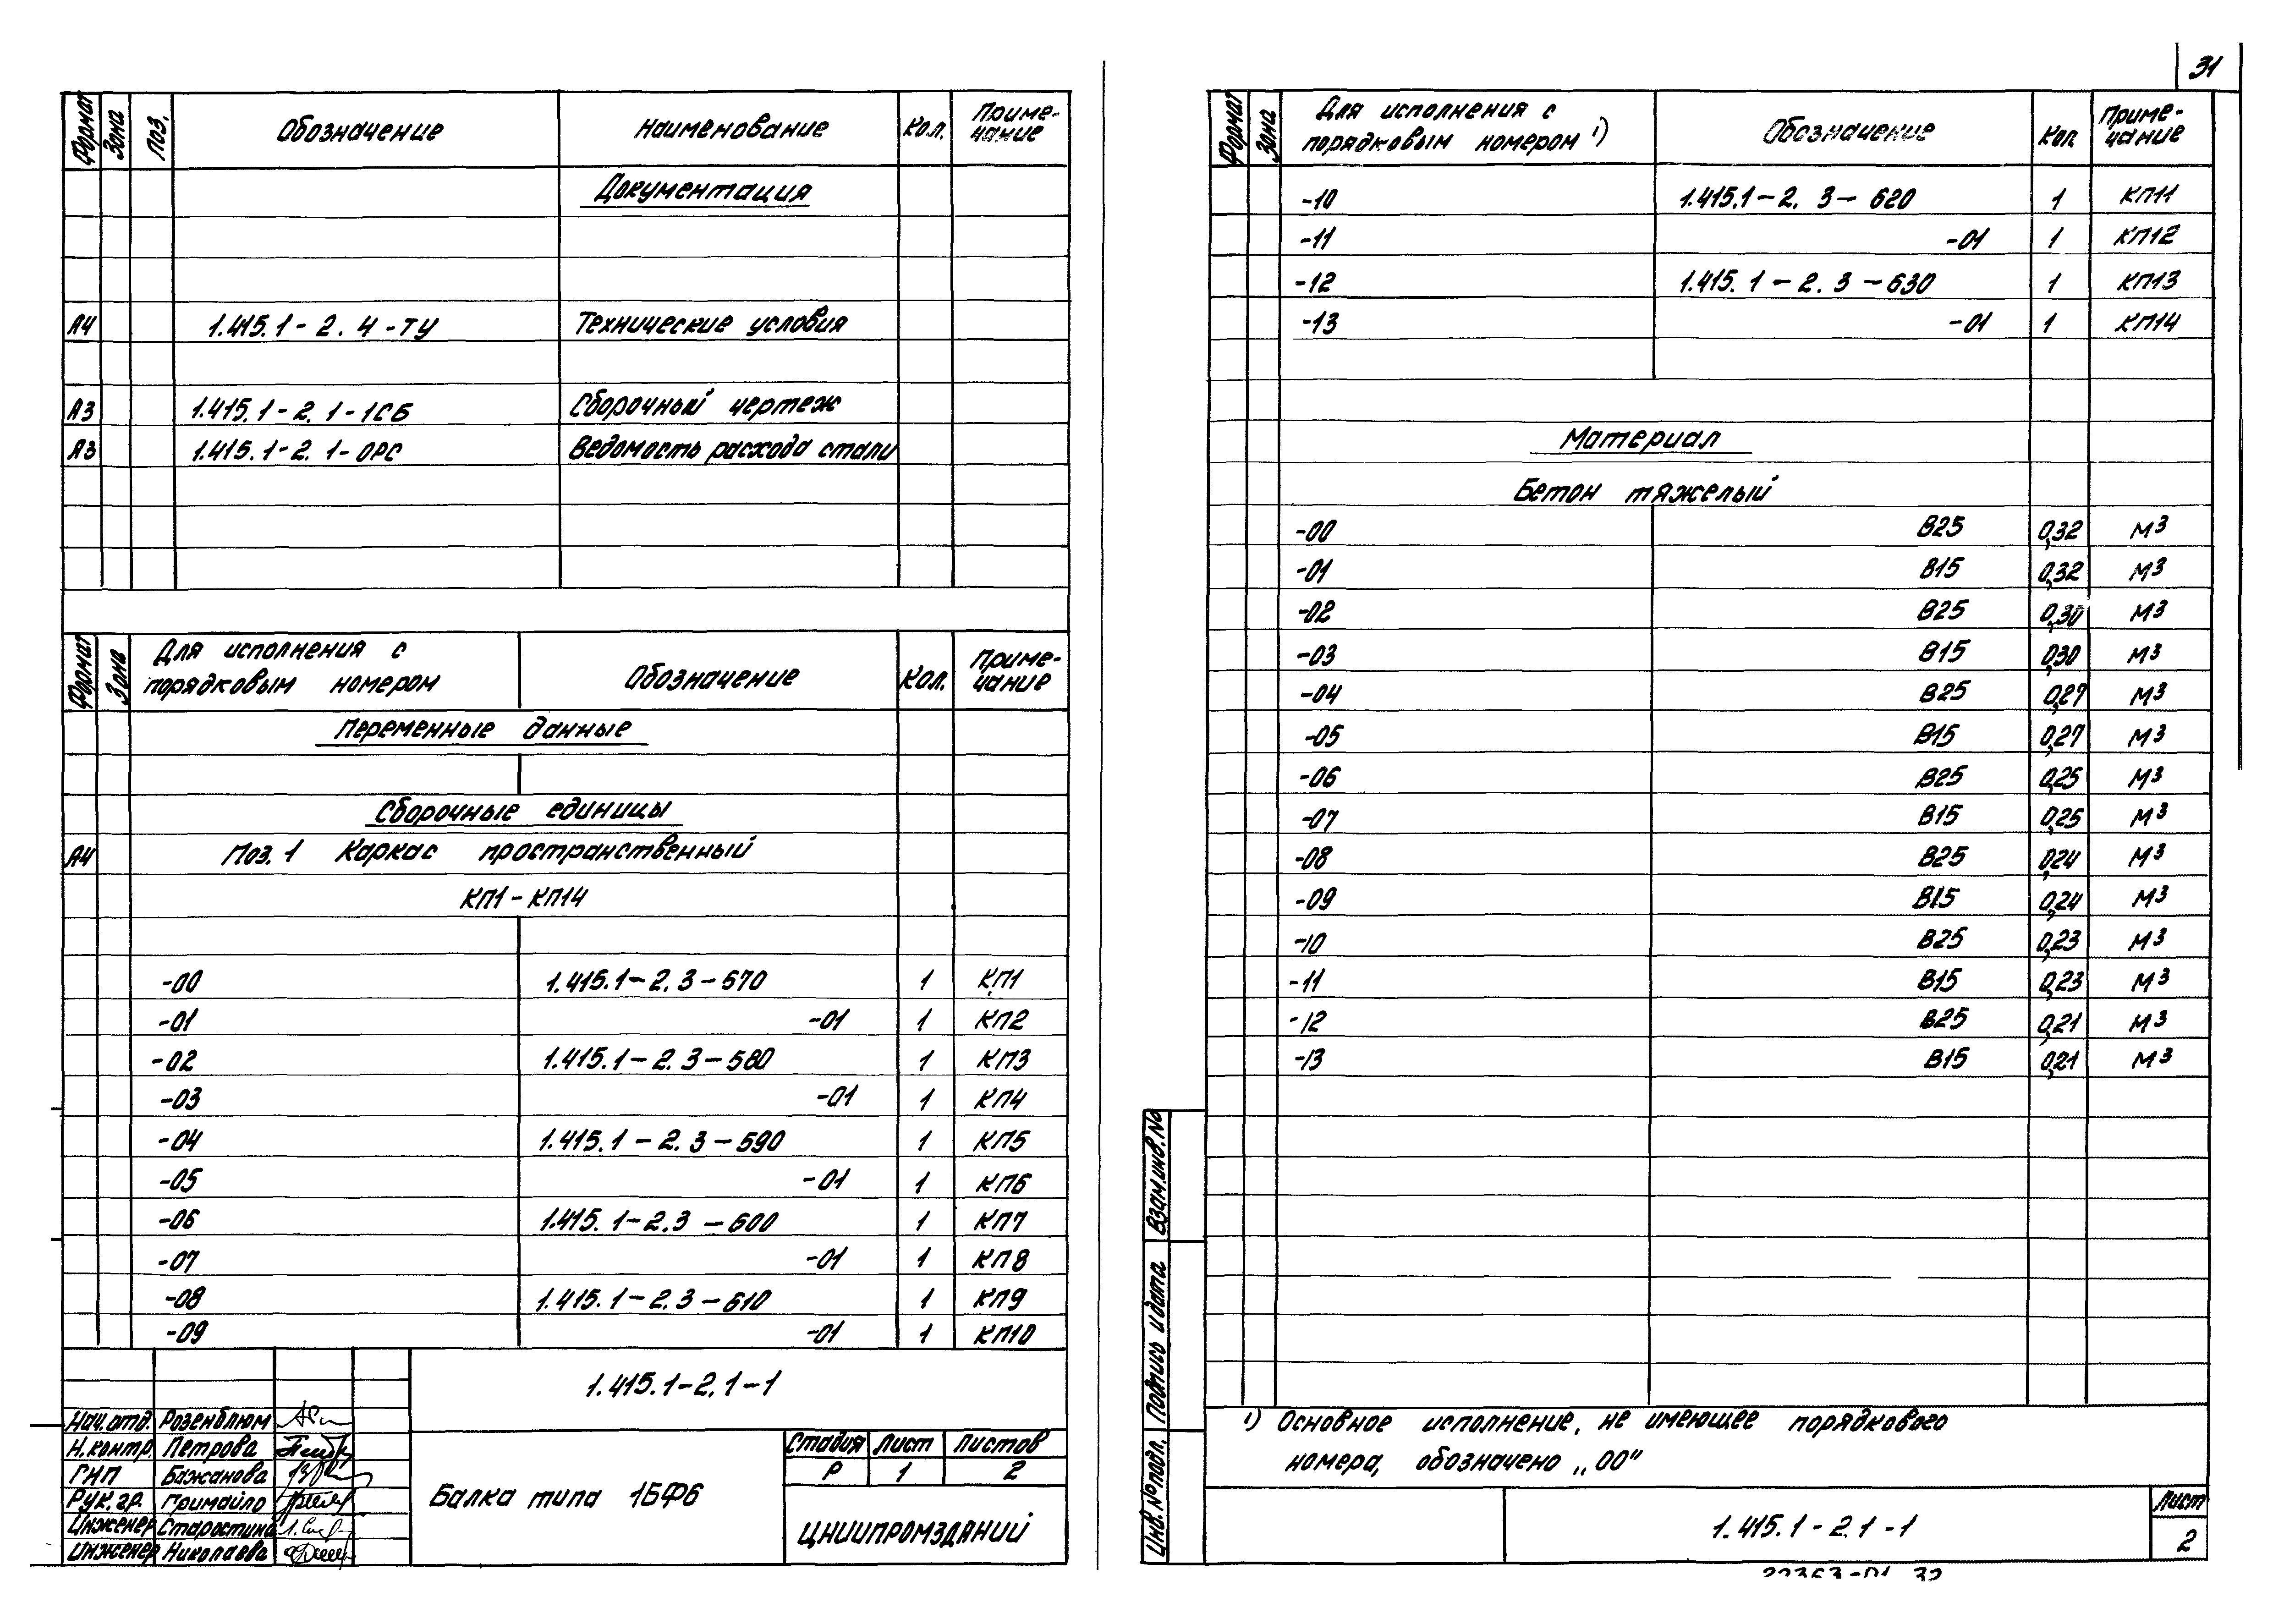 31
Формат Зона Поз. Обозначение Наименование Кол. Приме-
чание
Документация
А4 1.415.1-2.4-ТУ Технические условия
А3 1.415.1-2.1-1СБ Сборочный чертеж
А3 1.415.1-2.1-0РС Ведомость расхода стали
Формат Зона Для исполнения с
порядковым номером Обозначение Кол. Приме-
чание
Переменные данные
Сборочные единицы
А4 Поз. 1 Каркас пространственный
КП1-КП14
-00 1.415.1-2.3-570 1 КП1
-01 -01 1 КП2
-02 1.415.1-2.3-580 1 КП3
-03 -01 1 КП4
-04 1.415.1-2.3-590 1 КП5
-05 -01 1 КП6
-06 1.415.1-2.3-600 1 КП7
-07 -01 1 КП8
-08 1.415.1-2.3-610 1 КП9
-09 -01 1 КП10
1.415.1-2.1-1
Нач.отд. Розенблюм
Н.контр. Петрова
ГНП Бажанова
Рук.гр. Гримайло
Инженер Старостина
Инженер Николаева
Балка типа 1БФ6
Стадия Лист Листов
Р 1 2
ЦНИИПРОМЗДАНИЙ
Формат Зона Для исполнения с
порядковым номером 1) Обозначение Кол. Приме-
чание
-10 1.415.1-2.3-620 1 КП11
-11 -01 1 КП12
-12 1.415.1-2.3-630 1 КП13
-13 -01 1 КП14
Материал
Бетон тяжелый
-00 В25 0,32 м3
-01 В15 0,32 м3
-02 В25 0,30 м3
-03 В15 0,30 м3
-04 В25 0,27 м3
-05 В15 0,27 м3
-06 В25 0,25 м3
-07 В15 0,25 м3
-08 В25 0,24 м3
-09 В15 0,24 м3
-10 В25 0,23 м3
-11 В15 0,23 м3
-12 В25 0,21 м3
-13 В15 0,21 м3
Взам.инв.№
Подпись и дата
Инв.№ подл.
1) Основное исполнение, не имеющее порядкового
номера, обозначено „00"
1.415.1-2.1-1
Лист
2
22363-01 32